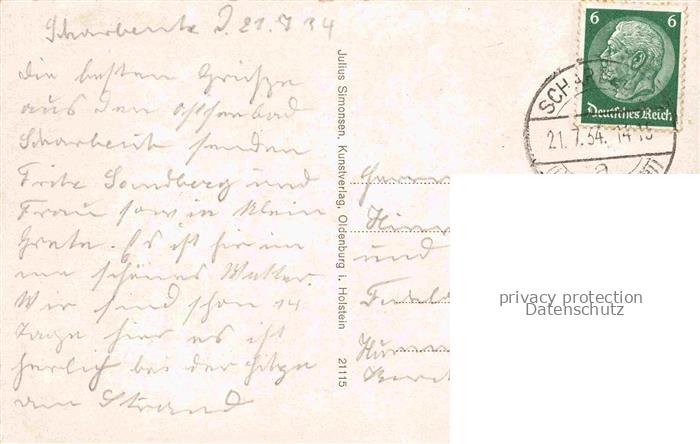 Scharbeutz d. 21.7.34
Die besten Grüße
aus dem Ostseebad
Scharbeutz senden
Fritz Sandberg und
Frau sowie klein
Grete. Es ist hier im
me schönes Wetter.
Wir sind schon 14
Tage hier es ist
herlich bei der Hitze
am Strand
Julius Simonsen, Kunstverlag, Oldenburg i. Holstein 21115
6 6
Deutsches Reich
SCHAR
21.7.34. 14-15
a
Herrn
und
privacy protection
Datenschutz